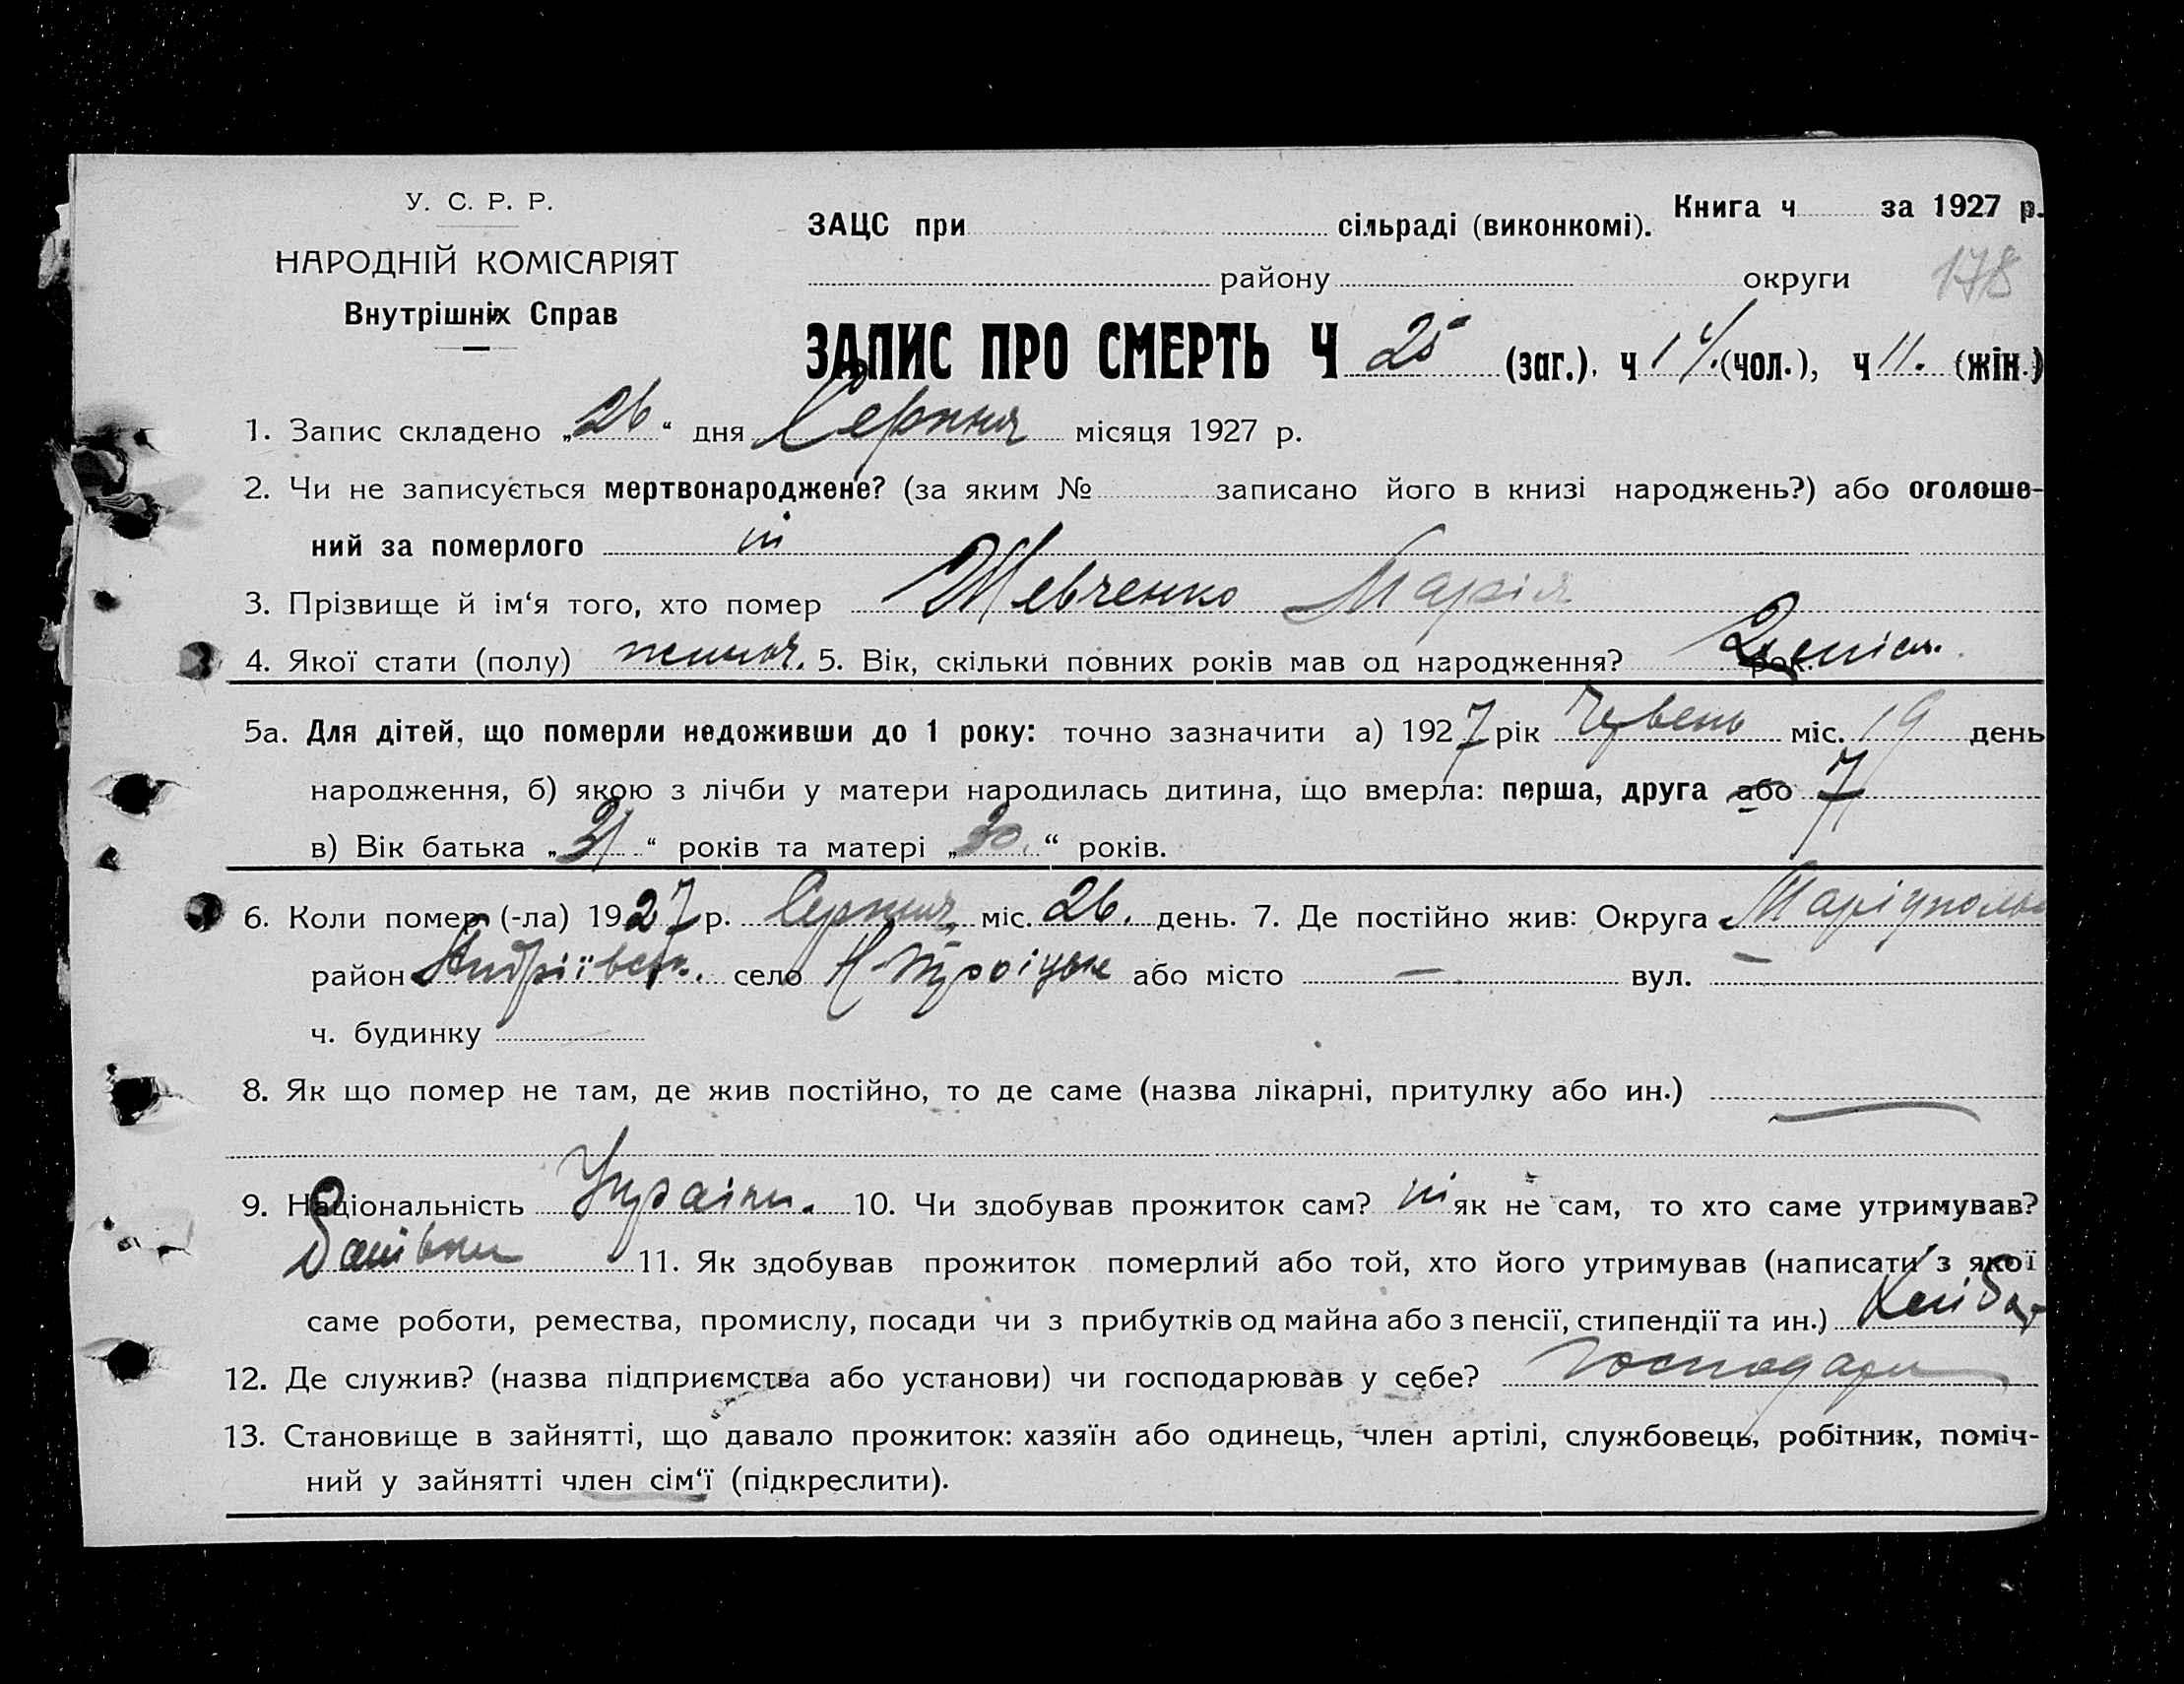 У. С. Р. Р.
НАРОДНІЙ КОМІСАРІЯТ
Внутрішніх Справ
Книга ч за 1927 р.
ЗАЦС при сільраді (виконкомі).
району округи 178
ЗАПИС ПРО СМЕРТЬ Ч 25 (заг.), ч 14 (чол.), ч 11. (жін.)
1. Запис складено „26“ дня Серпня місяця 1927 р.
2. Чи не записується мертвонароджене? (за яким № записано його в книзі народжень?) або оголоше-
ний за померлого ні
3. Прізвище й ім‘я того, хто помер Шевченко Марія
4. Якої стати (полу) жиноч. 5. Вік, скільки повних років мав од народження? 2 рок.
5а. Для дітей, що померли недоживши до 1 року: точно зазначити а) 1927 рік Червень міс. 19 день
народження, б) якою з лічби у матери народилась дитина, що вмерла: перша, друга або 7
в) Вік батька „31“ років та матері „30.“ років.
6. Коли помер (-ла) 1927 р. Серпня міс. 26. день. 7. Де постійно жив: Округа Маріупольс
район Андріївськ. село Н-Троїцьке або місто — вул. —
ч. будинку
8. Як що помер не там, де жив постійно, то де саме (назва лікарні, притулку або ин.) —
9. Національність Україн. 10. Чи здобував прожиток сам? ні як не сам, то хто саме утримував?
Батьки 11. Як здобував прожиток померлий або той, хто його утримував (написати з якої
саме роботи, ремества, промислу, посади чи з прибутків од майна або з пенсії, стипендії та ин.) Хліб
12. Де служив? (назва підприємства або установи) чи господарював у себе? господари
13. Становище в зайнятті, що давало прожиток: хазяїн або одинець, член артілі, службовець, робітник, поміч-
ний у зайнятті член сім‘ї (підкреслити).